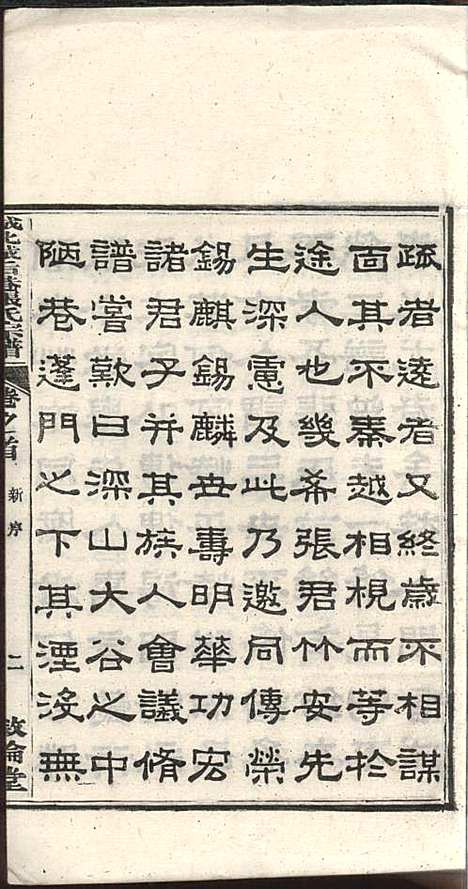 疏者遠者又終歲不相謀
面其不秦越相視而等於
途人也幾希張君竹安先
生深慮及此乃邀同傳榮
錫麒錫麟世壽明華功宏
諸君子并其族人會議脩
譜嘗歎曰深山大谷之中
陋巷蓬門之下其湮沒無
張氏宗譜
卷之首
新序
二
敦倫堂